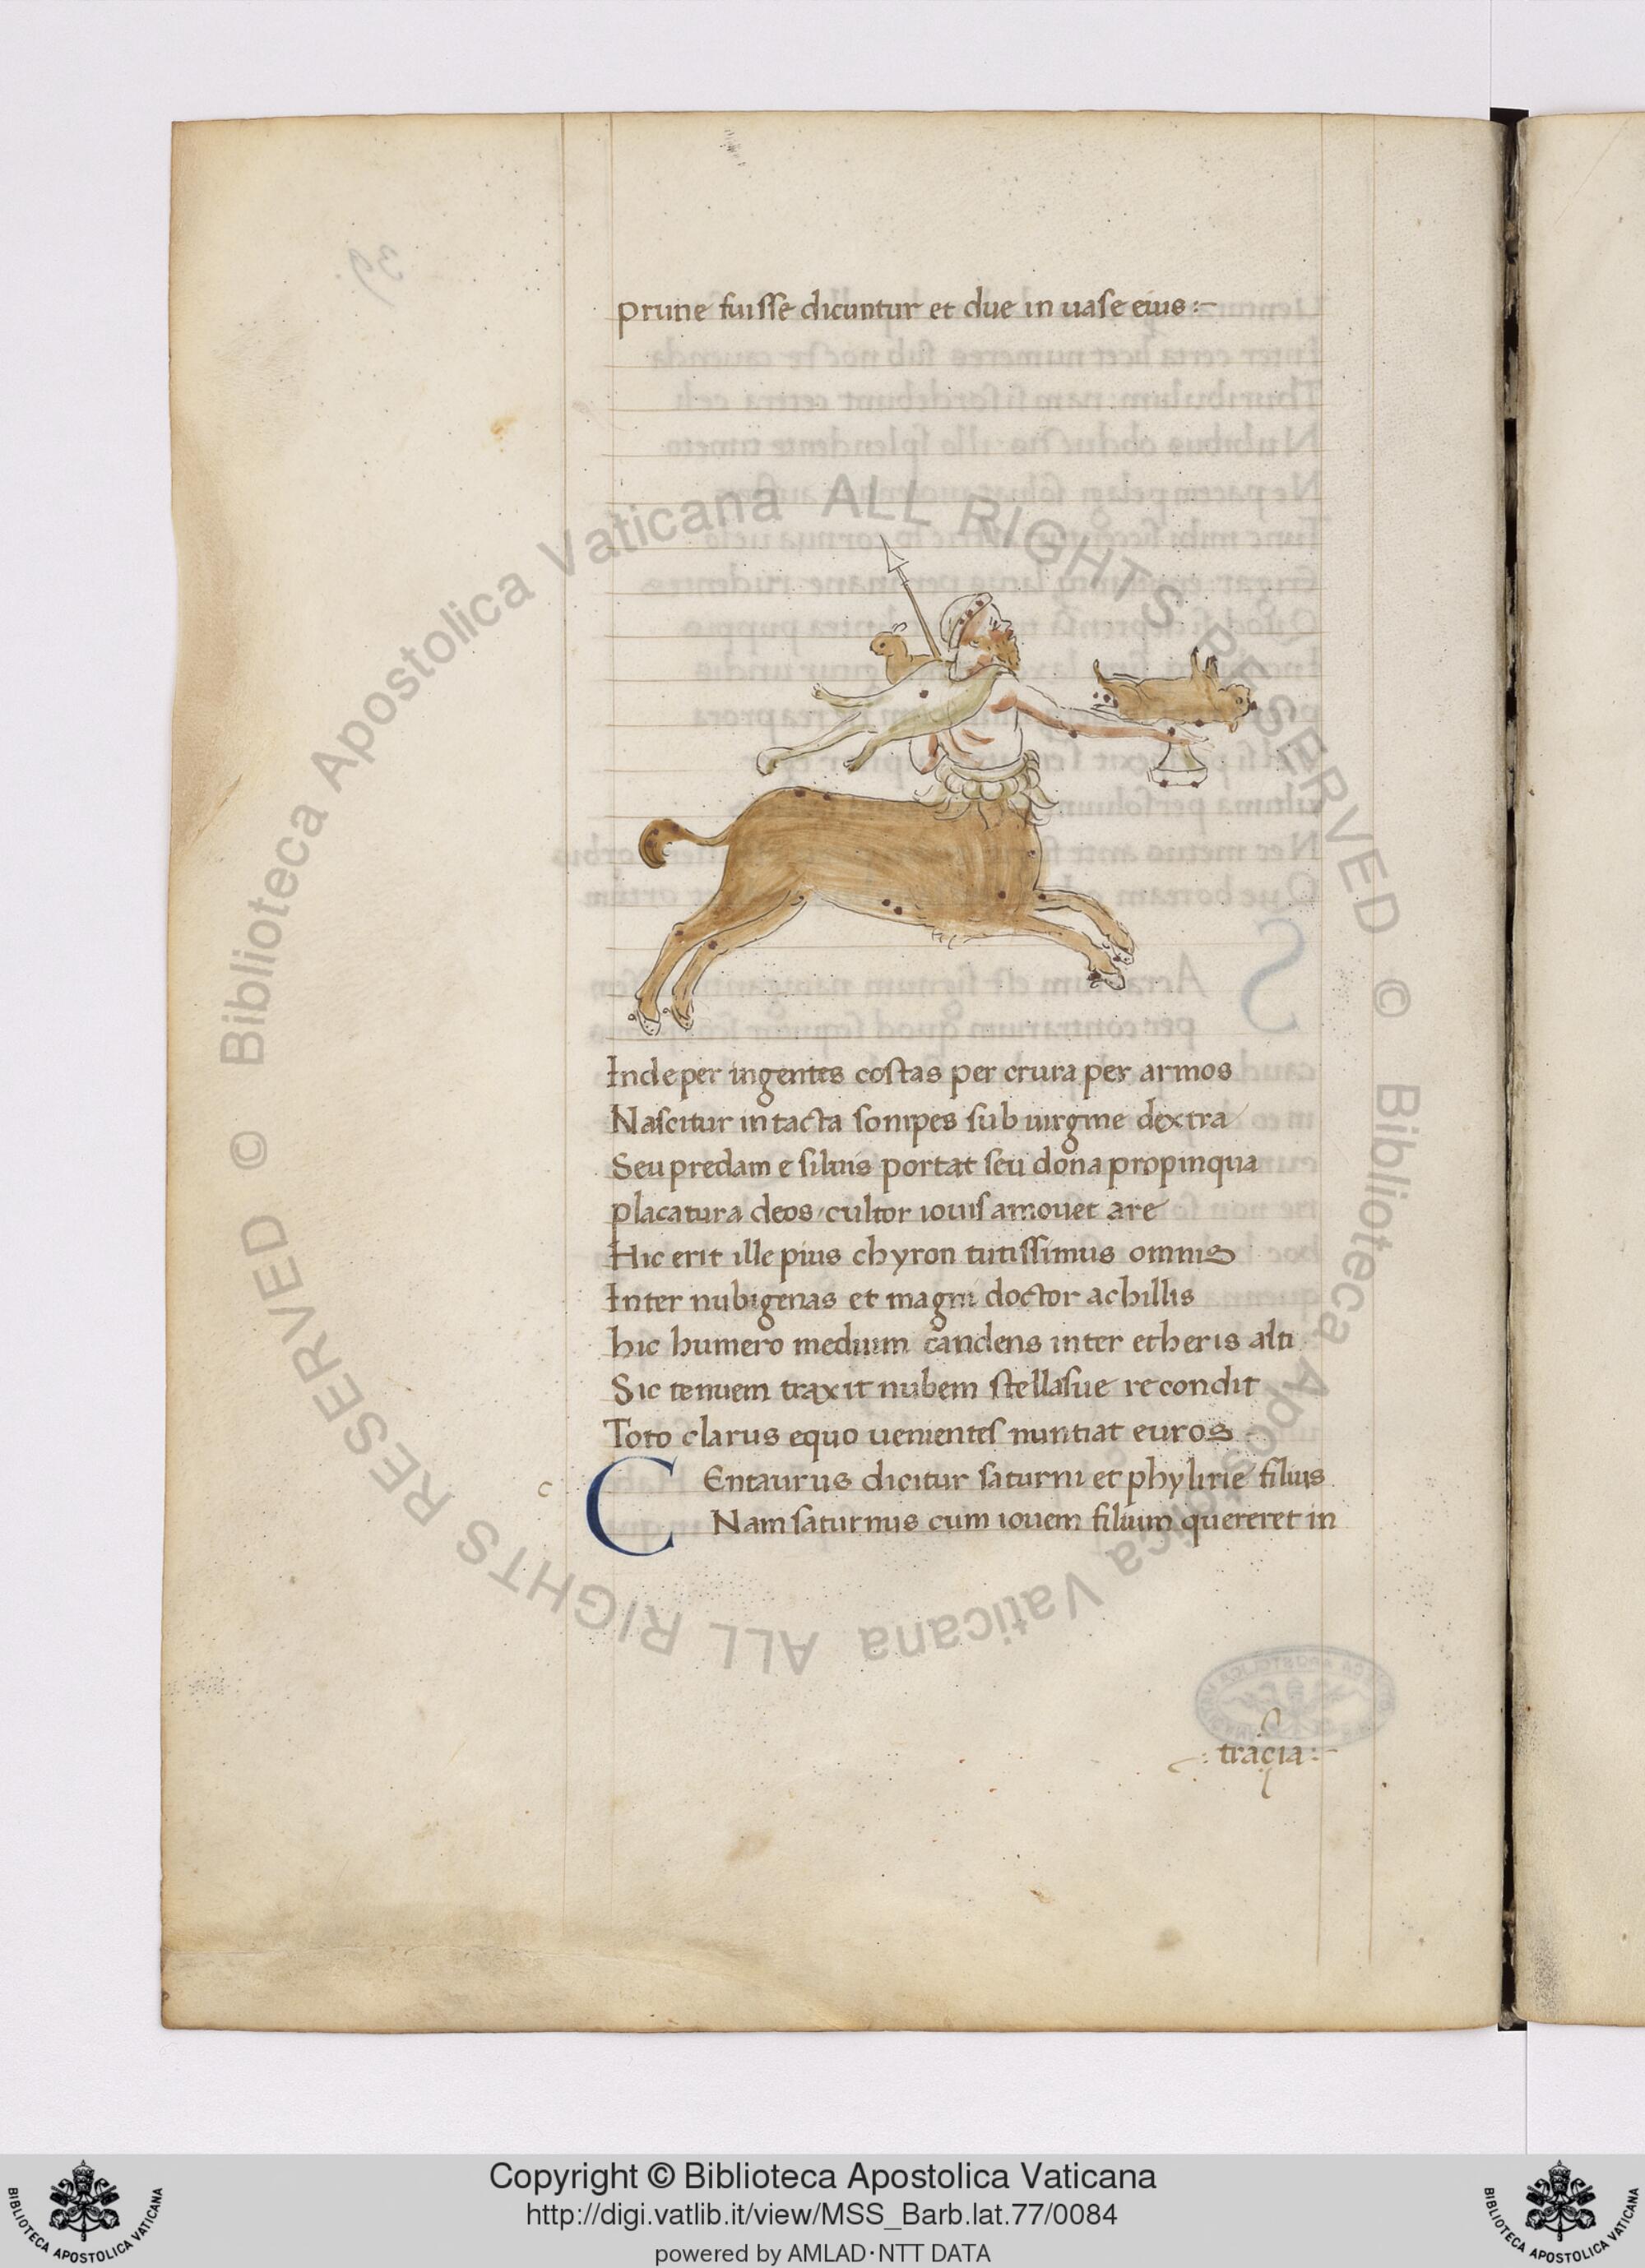 prune fuisse dicuntur et due in uase eius :~
Inde per ingentes costas per crura per armos
Nascitur intacta sonipes sub uirgine dextra
Seu predam e siluis portat seu dona propinqua
placatura deos cultor iouis amouet are
Hic erit ille pius chyron tutissimus omnis
Inter nubigenas et magni doctor achillis
hic humero medium candens inter etheris alti
Sic tenuem traxit nubem stellasue recondit
Toto clarus equo uenientes nuntiat euros
c
CEntaurus dicitur saturni et phylirie filius
Nam saturnus cum iouem filium quereret in
: tracia :~
© Biblioteca Apostolica Vaticana ALL RIGHTS RESERVED © Biblioteca Apostolica Vaticana ALL RIGHTS RESERVED
Copyright © Biblioteca Apostolica Vaticana
http://digi.vatlib.it/view/MSS_Barb.lat.77/0084
powered by AMLAD·NTT DATA
BIBLIOTECA APOSTOLICA VATICANA
BIBLIOTECA APOSTOLICA VATICANA